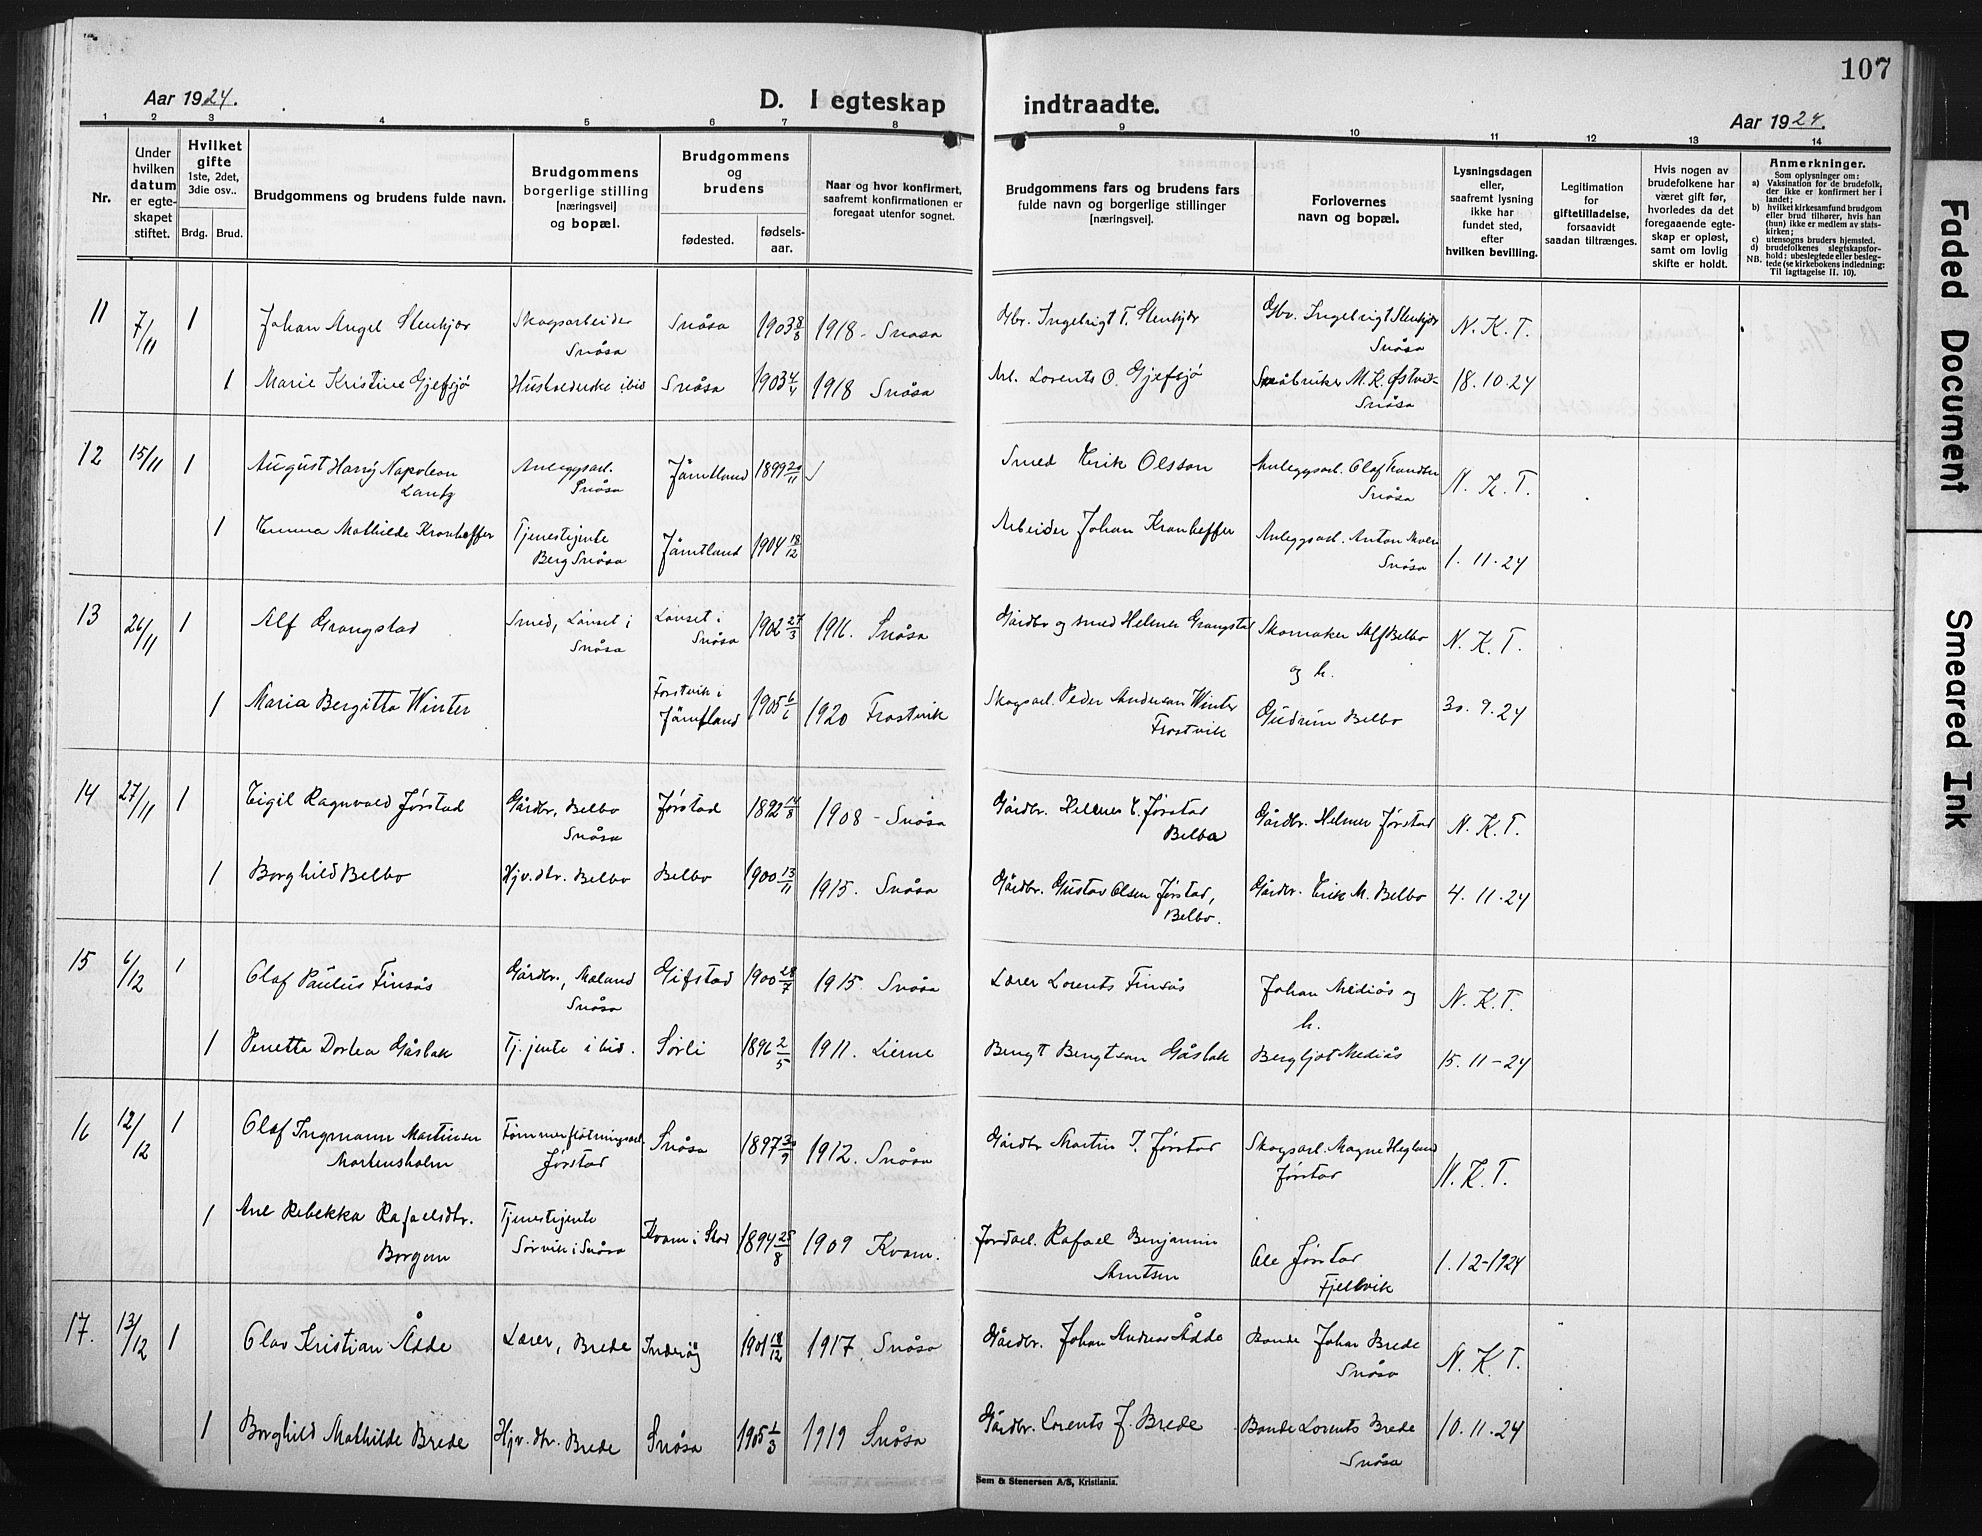 107
Aar 1924.
D. I egteskap indtraadte.
Aar 1924.
1 2 3 4 5 6 7 8 9 10 11 12 13 14
Nr.
Under hvilken datum er egte-skapet stiftet.
Hvilket gifte 1ste, 2det, 3die osv..
Brdg. Brud.
Brudgommens og brudens fulde navn.
Brudgommens borgerlige stilling [næringsvei] og bopæl.
Brudgommens og brudens
fødested. fødsels-aar.
Naar og hvor konfirmert, saafremt konfirmationen er foregaat utenfor sognet.
Brudgommens fars og brudens fars fulde navn og borgerlige stillinger [næringsvei].
Forlovernes navn og bopæl.
Lysningsdagen eller, saafremt lysning ikke har fundet sted, efter hvilken bevilling.
Legitimation for giftetilladelse, forsaavidt saadan tiltrænges.
Hvis nogen av brudefolkene har været gift før, hvorledes da det foregaaende egte-skap er opløst, samt om lovlig skifte er holdt.
Anmerkninger.
Som oplysninger om:
a) Vaksination for de brudefolk, der ikke er konfirmert her i landet;
b) hvilket kirkesamfund brudgom eller brud tilhører, hvis han (hun) ikke er medlem av stats-kirken;
c) utensogns bruders hjemsted.
d) brudefolkenes slegtskapsfor-hold: ubeslegtede eller besleg-tede (se kirkebokens indledning:
NB. Til iagttagelse II. 10).
11 7/11 1 Johan Angel Stenkjær Skogsarbeider Snåsa Snåsa 1903 8/8 1918 - Snåsa Gbr. Ingebrigt T. Stenkjær Gbr. Ingebrigt Stenkjær Snåsa N. K. T.
1 Marie Kristine Gjefsjø Husholderske ibid Snåsa 1903 4/4 1918 Snåsa Arb. Lorents O. Gjefsjø Småbruker M. K. Østvik Snåsa 18.10.24
12 15/11 1 August Harry Napoleon Lantz Anleggsarb. Snåsa Jämtland 1899 20/11 Smed Erik Olsson Anleggsarb. Olaf Snåsa N. K. T.
1 Emma Mathilde Kronheffer Tjenestjente Berg Snåsa Jämtland 1904 18/12 Arbeider Johan Kronheffer Anleggsarb. Anton Snåsa 1.11.24
13 26/11 1 Alf Grongstad Smed, Lånset i Snåsa Lånset i Snåsa 1902 27/3 1916. Snåsa Gårdbr og smed Helmer Grongstad Skomaker Alf Belbo og h. N. K. T.
1 Maria Bergitta Winter Frostvik i Jämtland 1905 6/6 1920 Frostvik Skogsarb. Peder Anderson Winter Frostvik Gudrun Belbo 30.9.24
14 27/11 1 Eigil Ragnvald Jørstad Gårdbr, Belbo Snåsa Jørstad 1892 14/8 1908 - Snåsa Gårdbr. Helmer E. Jørstad Belbo Gårdbr. Helmer Jørstad N. K. T.
1 Borghild Belbo Hjv. dtr. Belbo Belbo 1900 13/11 1915. Snåsa Gårdbr. Gustav Olsen Jørstad, Belbo. Gårdbr. Erik M. Belbo 4.11.24
15 6/12 1 Olaf Paulus Finsås Gårdbr., Moland Snåsa Gifstad 1900 28/7 1915 Snåsa Lærer Lorents Finsås Johan Mediås og h. N. K. T.
1 Penetta Dortea Gåsbak Tj. jente ibid. Sørli 1896 2/5 1911. Lierne Bengt Bengtson Gåsbak Bergljot Mediås 15.11-24
16 12/12 1 Olaf Ingmann Martinsen Mortensholm Tømmerfløtningsarb. Jørstad Snåsa 1897 30/9 1912. Snåsa Gårdbr Martin J. Jørstad Skogsarb. Magne Hegland Jørstad N. K. T.
1 Ane Rebekka Rafaelsdtr. Borgen Tjenestjente Sørvik i Snåsa Kvam i Stod 1894 25/8 1909 Kvam. Jordarb. Rafael Benjamin Arntsen Ole Jørstad Fjellvik 1.12-1924
17. 13/12 1 Olav Kristian Ådde Lærer, Brede Inderøy 1901 18/12 1917 Snåsa Gårdbr. Johan Andreas Ådde Bonde Johan Brede Snåsa N. K. T.
1 Borghild Mathilde Brede Hjv. dtr. Brede Snåsa 1905 1/3 1919 Snåsa Gårdbr. Lorents J. Brede Bonde Lorents Brede Snåsa 10.11.24
Sem & Stenersen A/S, Kristiania.
Faded Document
Smeared Ink